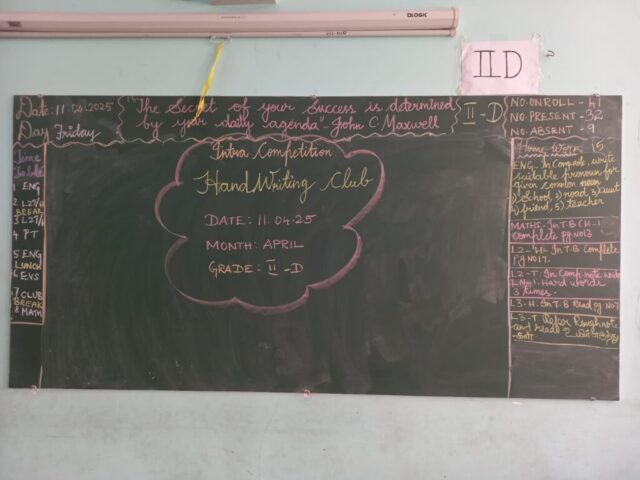 LOGIC
II D
Date: 11.04.2025
Day Friday
"The Secret of your Success is determined
by your daily agenda" John C Maxwell
II - D
NO. ONROLL - 41
NO. PRESENT - 32
NO. ABSENT - 9
Time
Table
1 ENG
2 L2T/H
BREAK
3 L2T/H
4 PT
5 ENG
LUNCH
6 EVS
7 CLUB
BREAK
8 MATH
Intra Competition
HandWriting Club
DATE: 11.04.25
MONTH: APRIL
GRADE: II - D
Home Work 15
ENG- In Comp note, write
suitable pronoun for
given common noun
1) School, 2) road, 3) aunt
4) friend, 5) teacher
MATHS- In T.B CH-1
complete pg no 13
L2-H- In T.B Complete
Pg No 17.
L2-T: In Comp. note write
LN-1. Hard words
3 times.
L3-H. In T.B Read pg No 7
L3-T. Refer Roughnote
and read